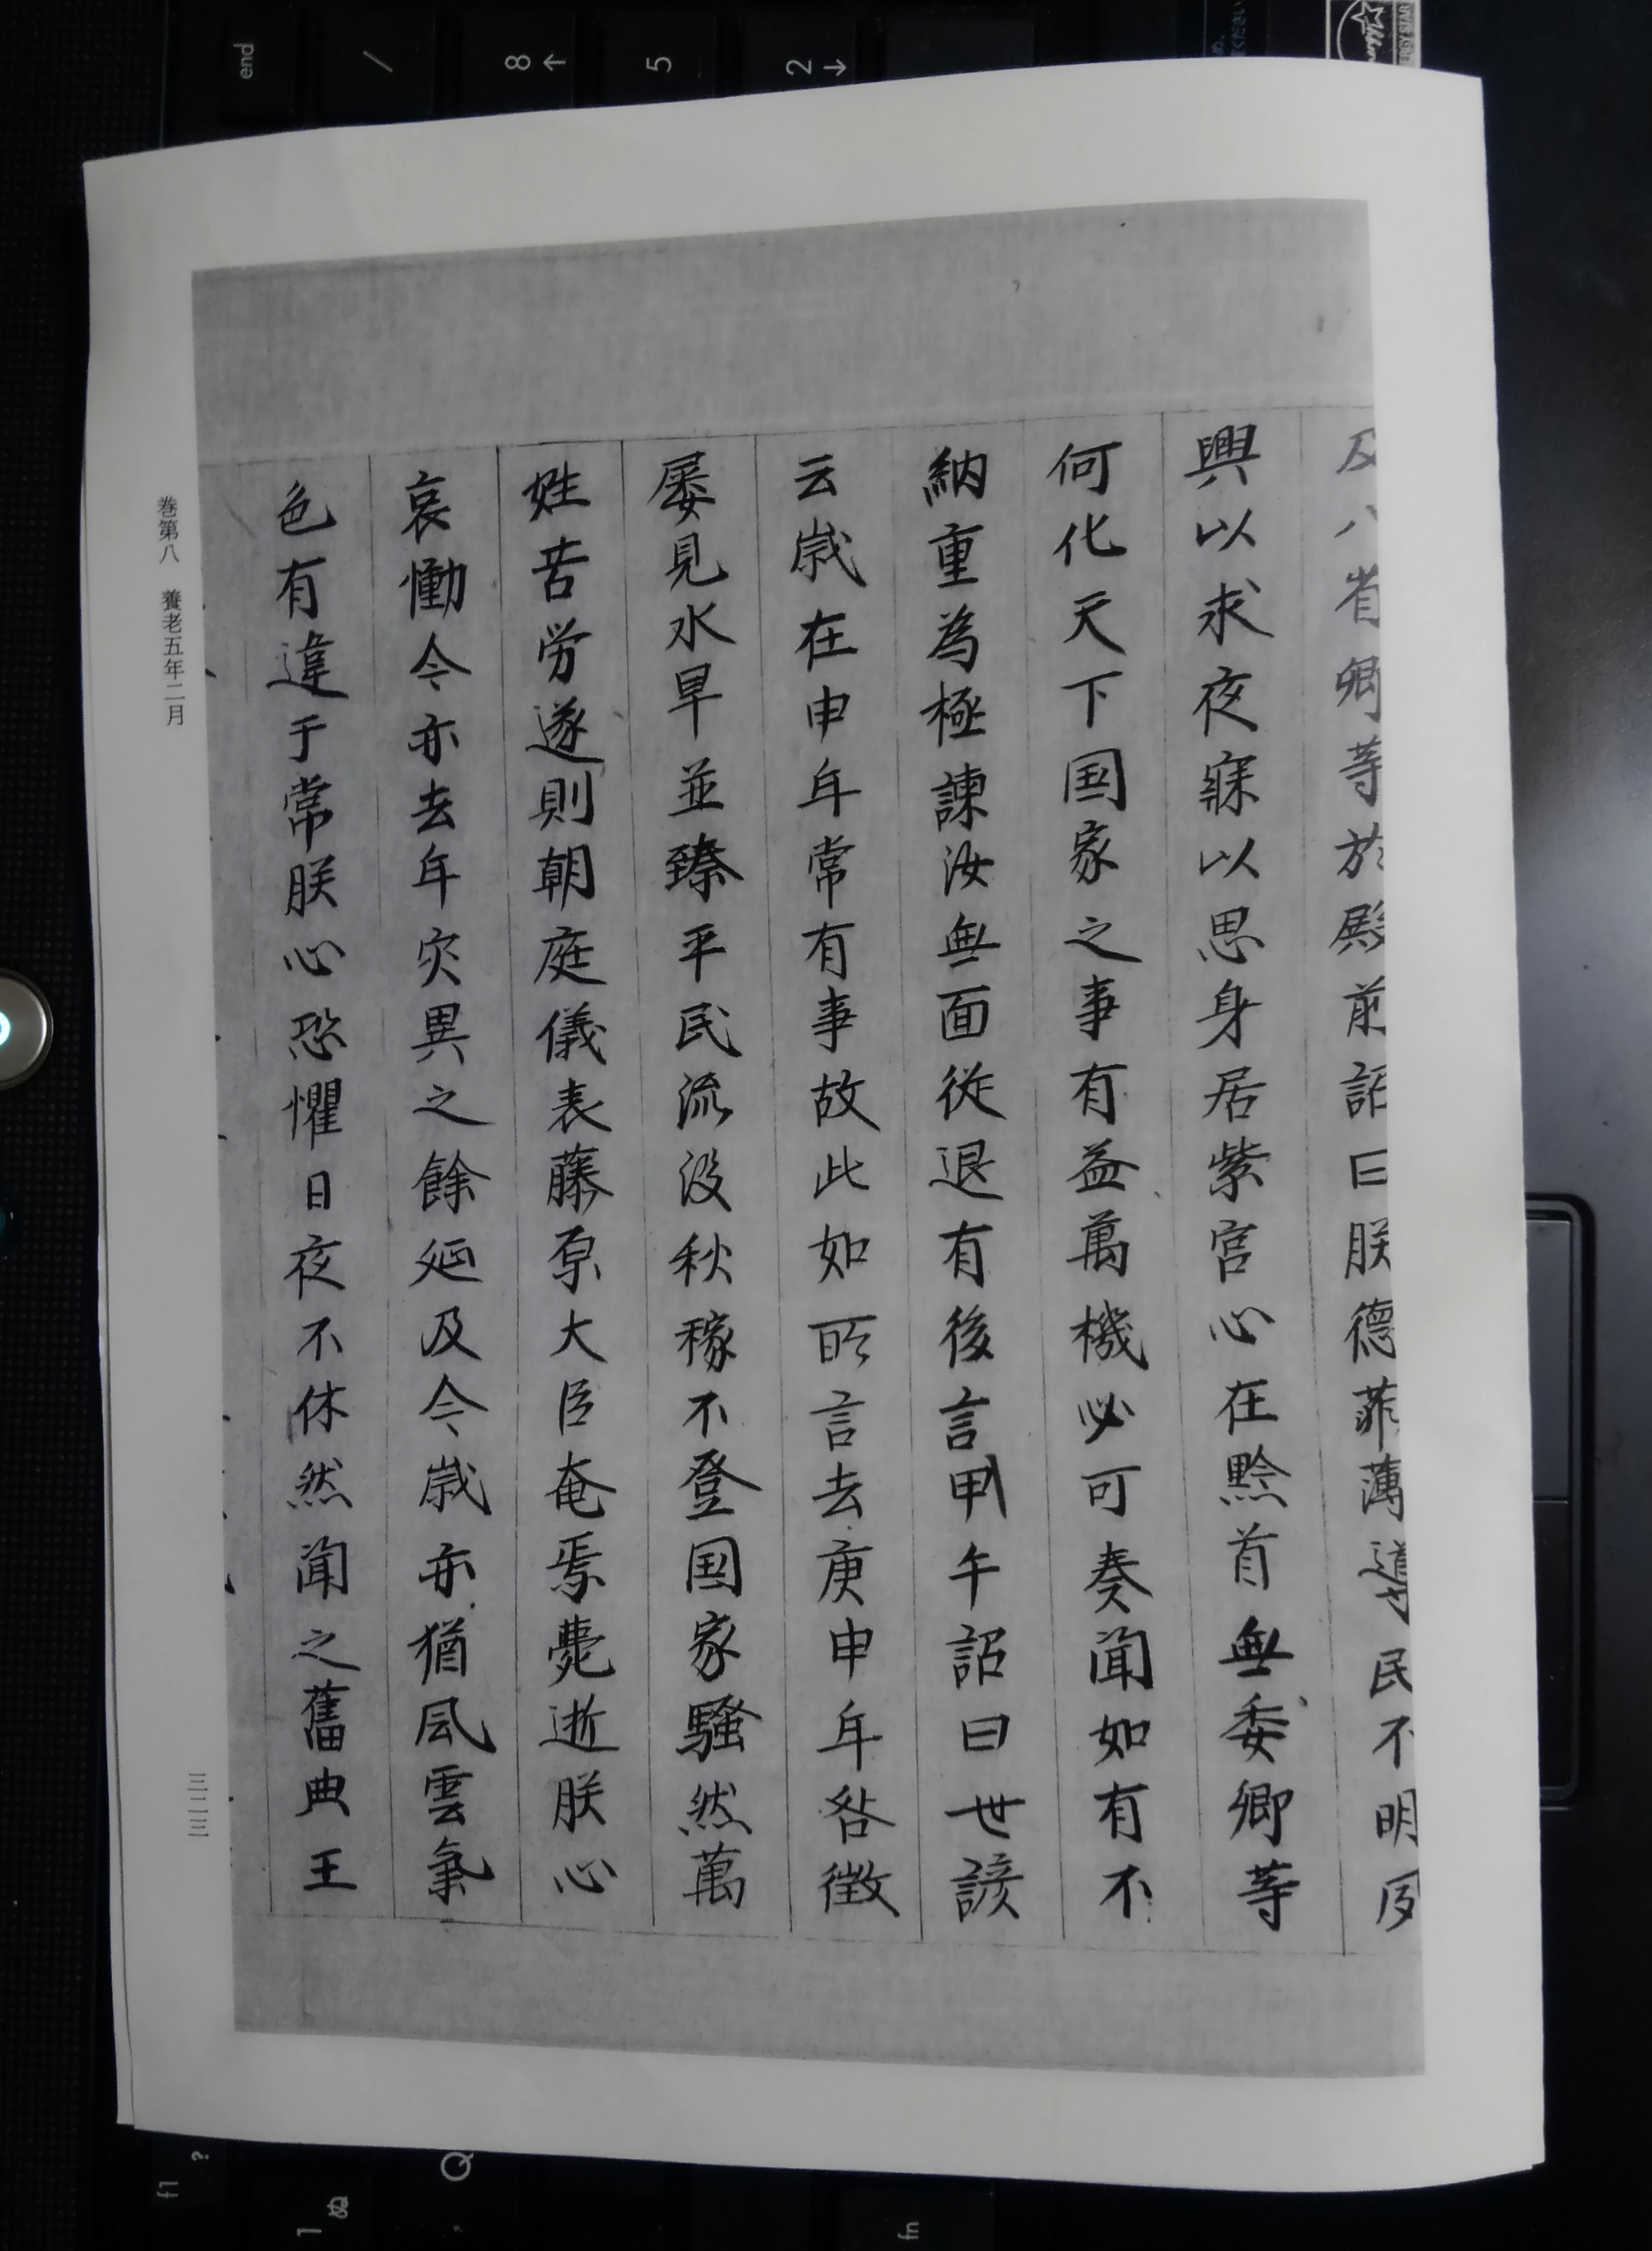 及八省卿等於殿前詔曰朕德菲薄導民不明夙
興以求夜寐以思身居紫宮心在黔首無委卿等
何化天下国家之事有益萬機必可奏聞如有不
納重為極諫汝無面從退有後言甲午詔曰世諺
云歳在申年常有事故此如所言去庚申年咎徴
屡見水旱並臻平民流没秋稼不登国家騒然萬
姓苦労遂則朝庭儀表藤原大臣奄焉薨逝朕心
哀慟今亦去年灾異之餘延及今歳亦猶風雲氣
色有違于常朕心恐懼日夜不休然聞之舊典王
巻第八 養老五年二月
三二三
end
/
8
5
2
f1
?
1
ぬ
Q
fn
ください
ENERGY STAR